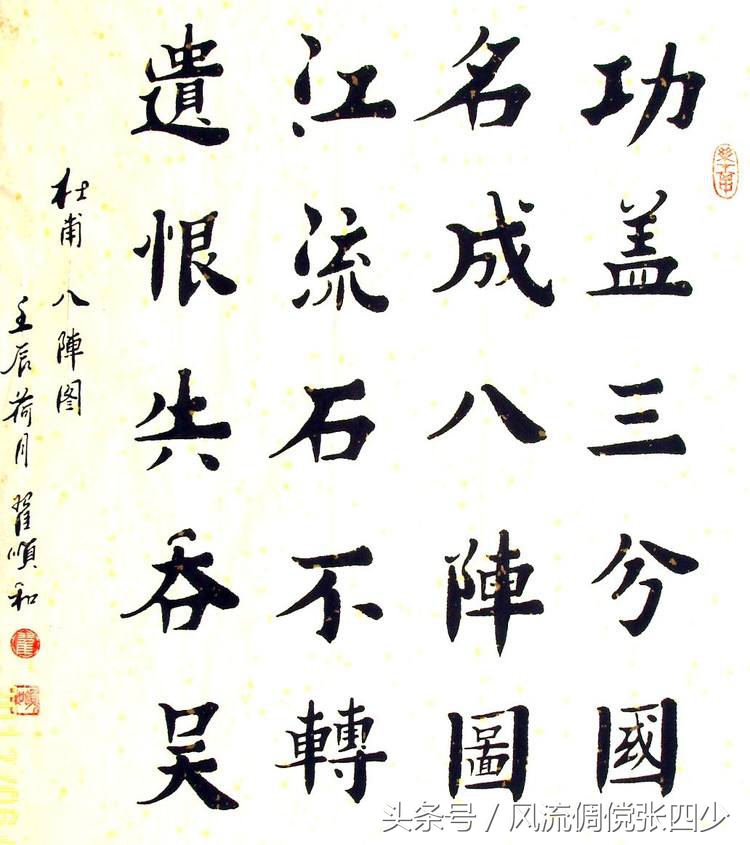 功盖三分國
名成八陣圖
江流石不轉
遺恨失吞吴
杜甫 八陣图
壬辰荷月 翟順和
头条号 / 风流倜傥张四少